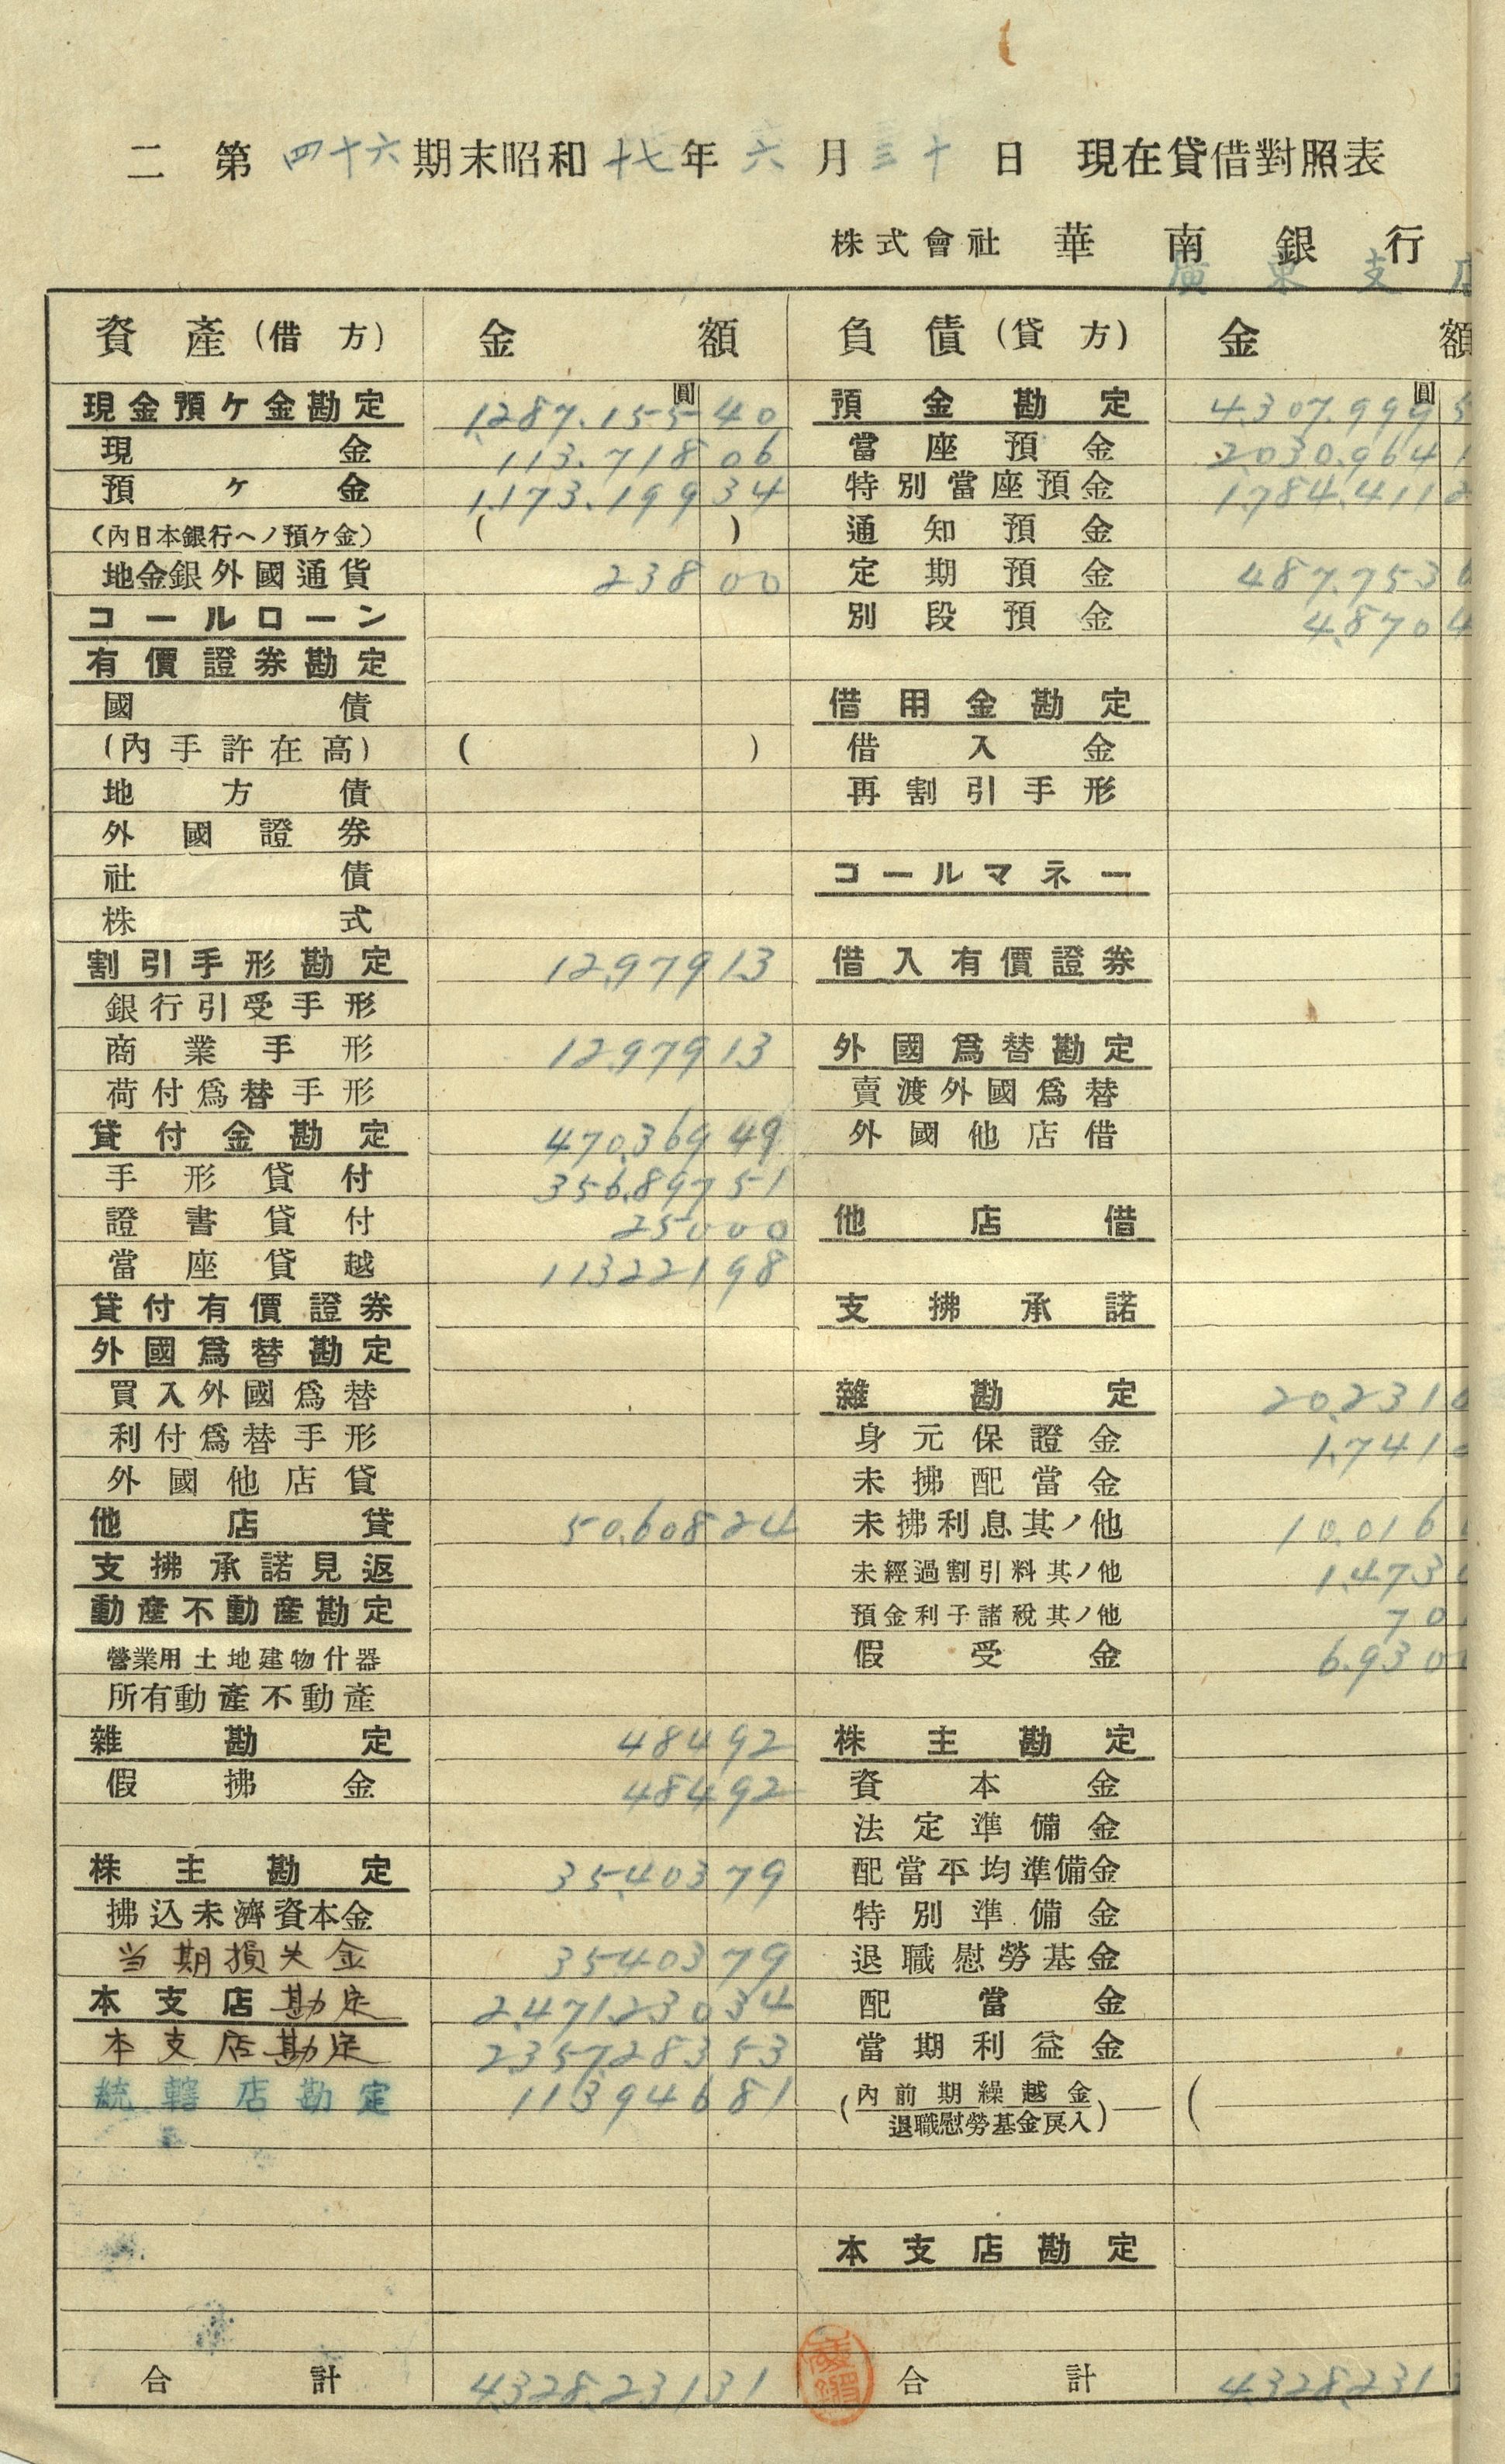 二 第四十六期末昭和十七年六月三十日 現在貸借對照表
株式會社 華南銀行
廣東支店
資產(借方) 金額 負債(貸方) 金額
現金預ケ金勘定 1,287,155 40 預金勘定 4,307,999
圓 圓
現金 113,718 06 當座預金 2,030,964
預ケ金 1,173,199 34 特別當座預金 1,784,411
(內日本銀行ヘノ預ケ金) ( ) 通知預金
地金銀外國通貨 238 00 定期預金 487,753
コールローン 別段預金 4,870
有價證券勘定
國債 借用金勘定
(內手許在高) ( ) 借入金
地方債 再割引手形
外國證券
社債 コールマネー
株式
割引手形勘定 12,979 13 借入有價證券
銀行引受手形
商業手形 12,979 13 外國爲替勘定
荷付爲替手形 賣渡外國爲替
貸付金勘定 470,369 49 外國他店借
手形貸付 356,897 51
證書貸付 250 00 他店借
當座貸越 113,221 98
貸付有價證券 支拂承諾
外國爲替勘定
買入外國爲替 雜勘定 20,231
利付爲替手形 身元保證金 1,741
外國他店貸 未拂配當金
他店貸 50,608 24 未拂利息其ノ他 10,016
支拂承諾見返 未經過割引料其ノ他 1,473
動產不動產勘定 預金利子諸稅其ノ他 70
營業用土地建物什器 假受金 6,930
所有動產不動產
雜勘定 484 92 株主勘定
假拂金 484 92 資本金
法定準備金
株主勘定 35,403 79 配當平均準備金
拂込未濟資本金 特別準備金
当期損失金 35,403 79 退職慰勞基金
本支店勘定 2,471,230 34 配當金
本支店勘定 2,357,283 53 當期利益金
統轄店勘定 113,946 81 (內前期繰越金 (
退職慰勞基金戾入)
本支店勘定
合計 4,328,231 31 合計 4,328,231